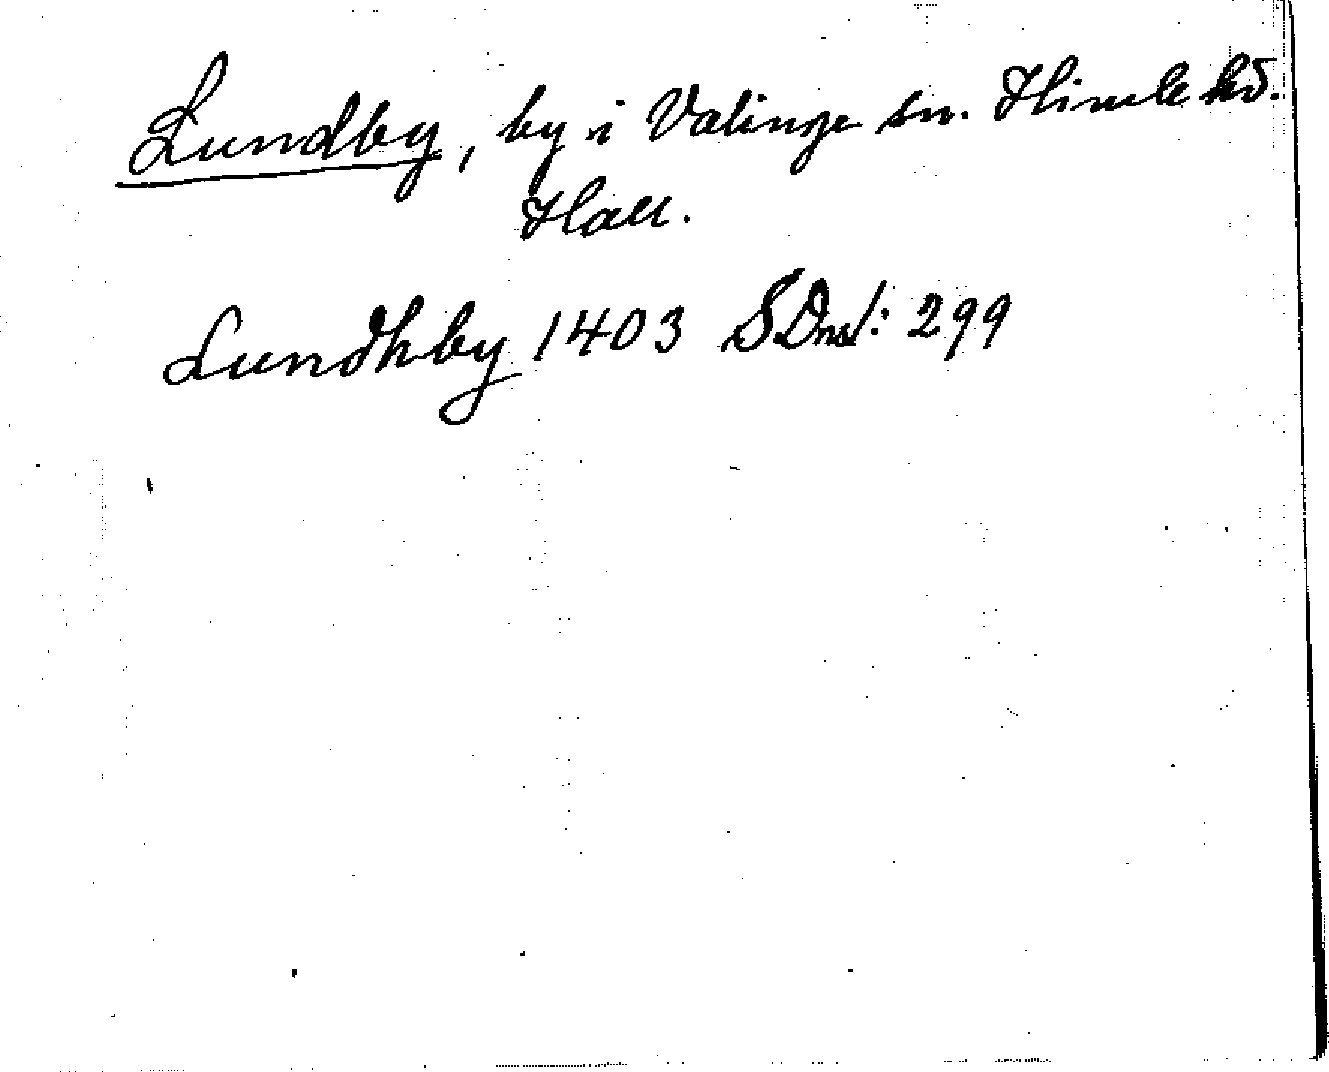 Lundby, by i Valinge sn. Himle hd.
Hall.
Lundhby 1403 SDns1: 299